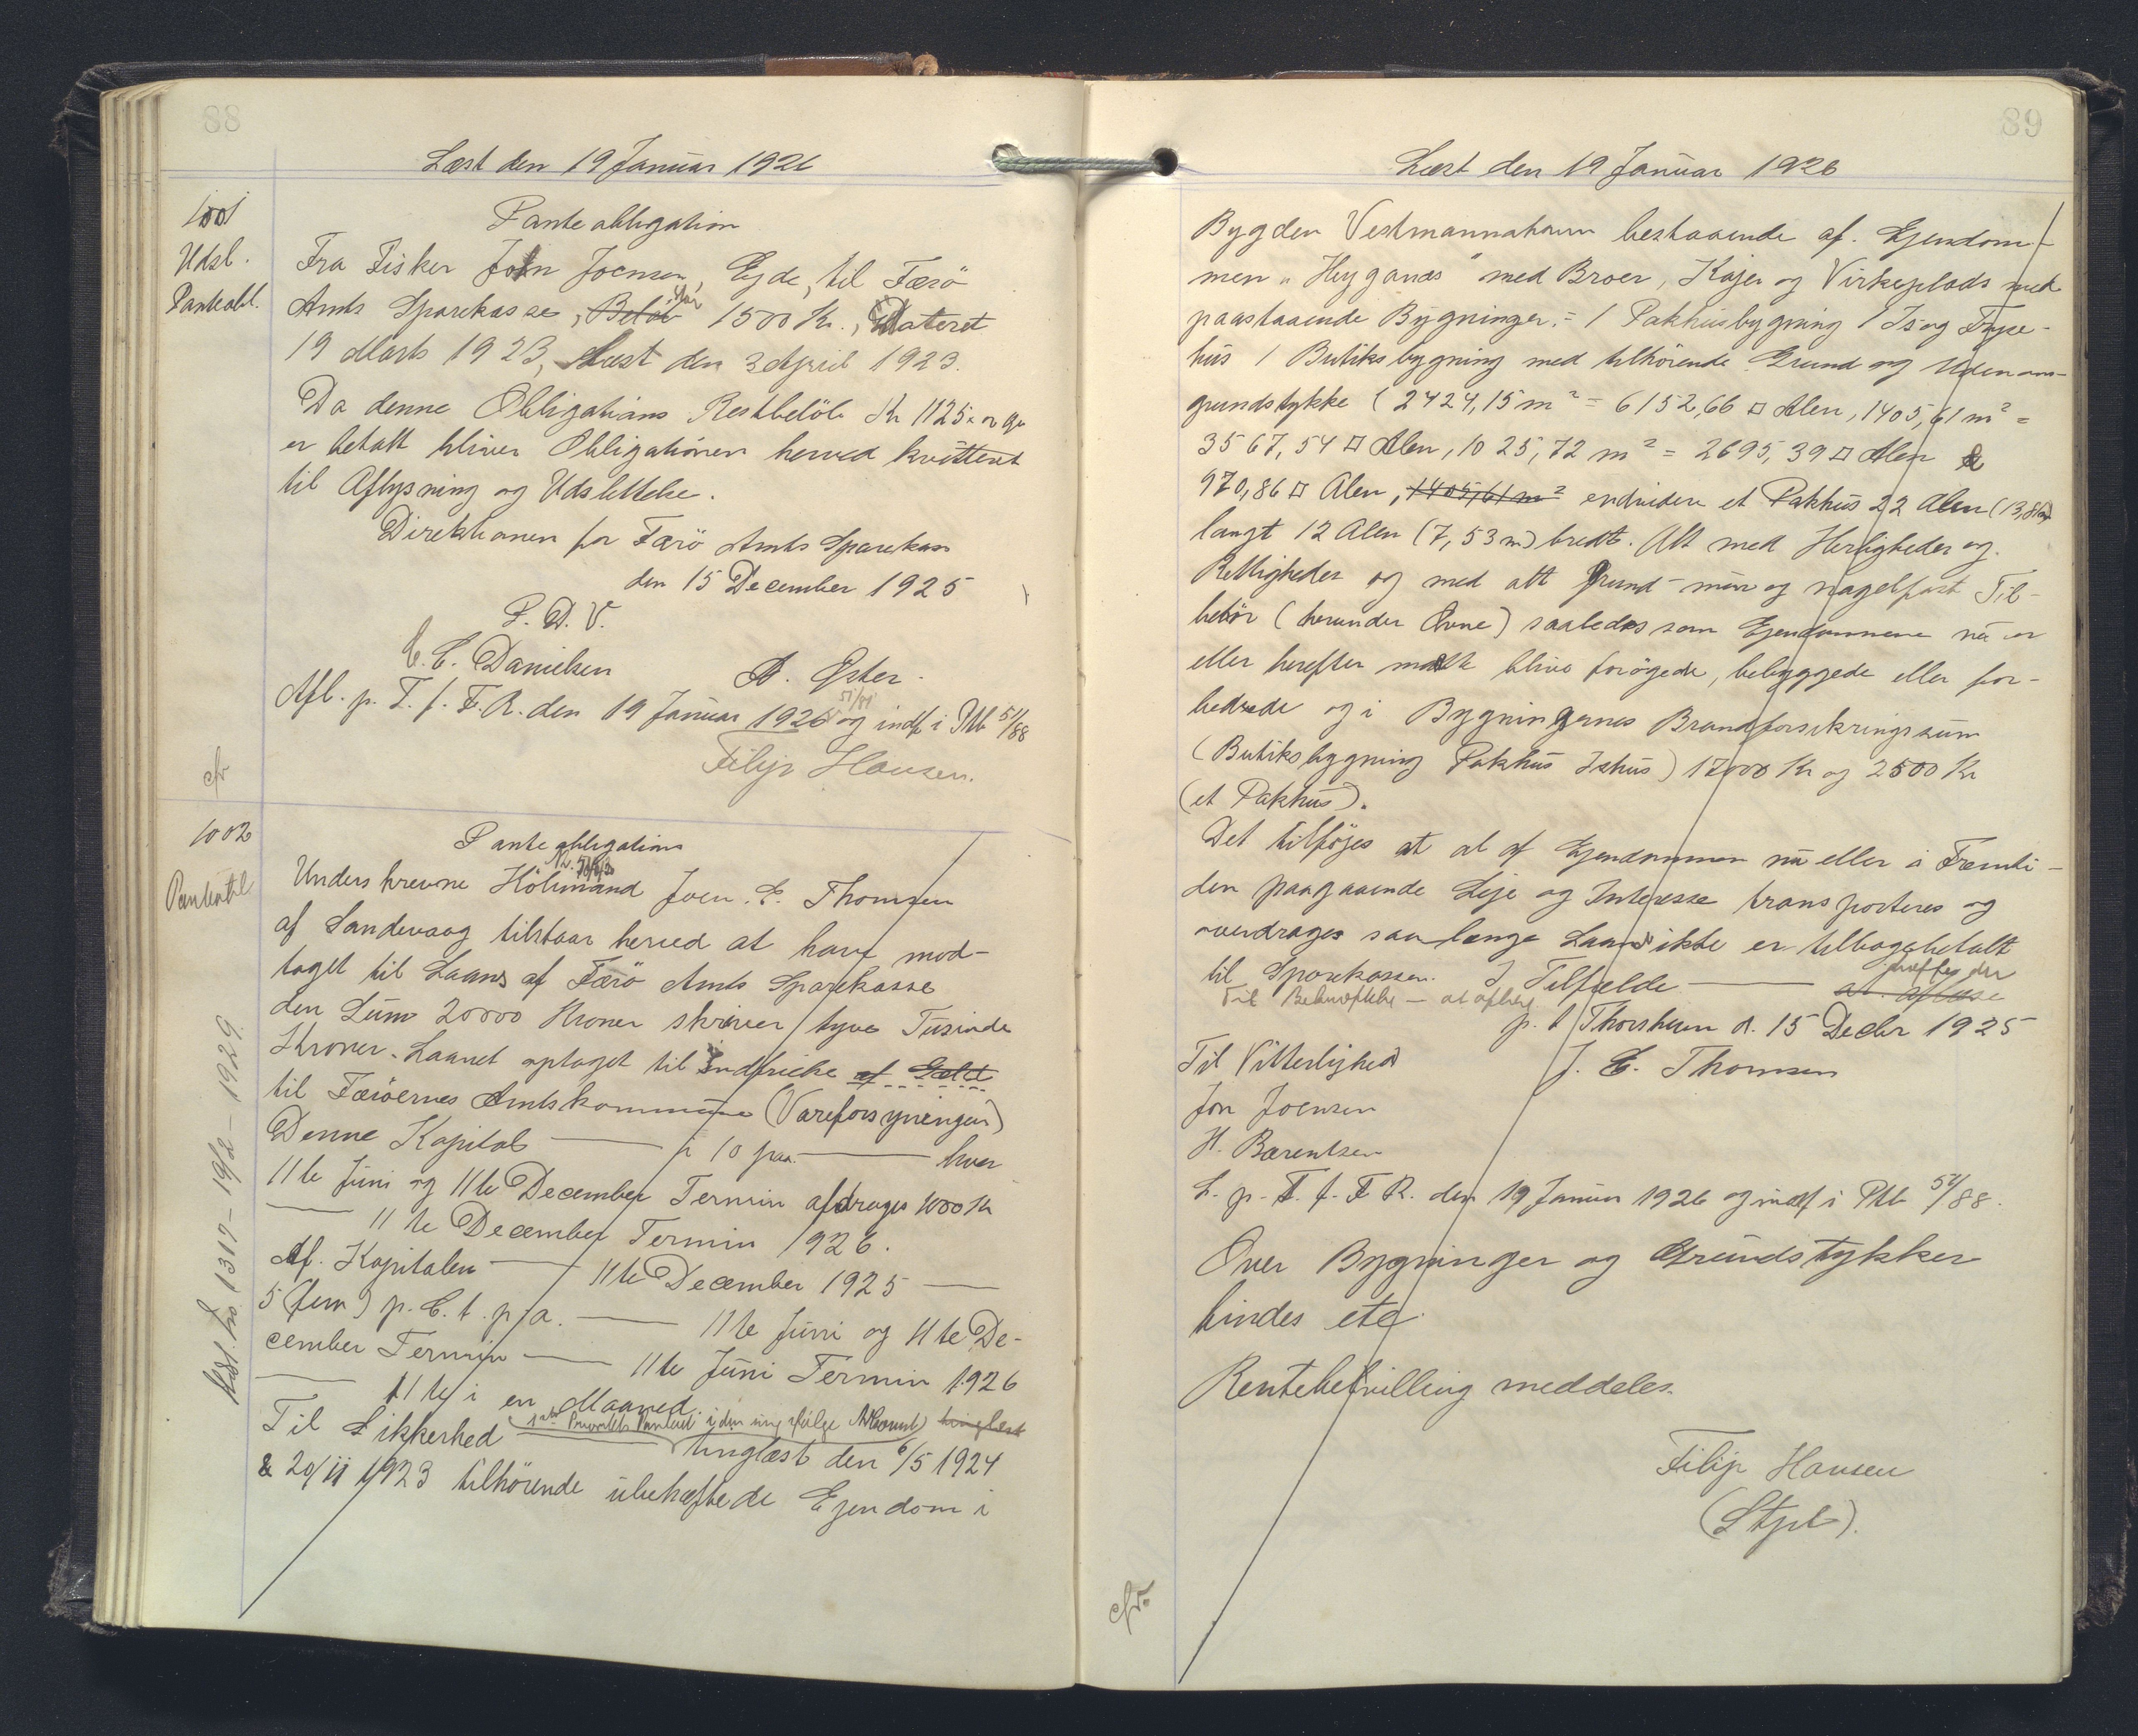 88
Læst den 19 Januar 1926
1001
Udsl.
Panteobl.
Panteobligation
Fra Fisker John Joensen, Ejde, til Færö
Amts Sparekasse, Beløb stor 1500 Kr., Dateret
19 Marts 1923, Læst den 3 April 1923.
Da denne Obligations Restbelöb Kr 1125
er betalt bliver Obligationen herved kvitteret
til Aflysning og Udslettelse.
Direktionen for Færö Amts Sparekasse
den 15 December 1925
P. D. V.
C. C. Danielsen A. Ester.
Afl. p. T. f. F. R. den 19 Januar 1926 og indf i Ptb 51/88
Filip Hansen.
cfr
1002
Panteobl
Udsl. No. 1317 - 19/2 - 1929.
Panteobligation
Underskrevne Köbmand Joen. C. Thomsen
af Sandevaag tilstaar herved at have mod-
taget til Laans af Færö Amts Sparekasse
den Sum 20000 Kroner skriver tyve Tusinde
Kroner. Laanet optaget til Indfrielse af Gæld
til Færöernes Amtskommune (Vareforsyningen)
Denne Kapital — p 10 paa — hver
11te Juni og 11te December Termin afdrages 1000 Kr
— 11te December Termin 1926.
Af Kapitalen — 11te December 1925 —
5 (fem) p. C. t. p. a. — 11te Juni og 11te De-
cember Termin — 11te Juni Termin 1926
— 11te i en Maaned.
Til Sikkerhed 1ste Prioritets Panteret i den mig ifølge tinglæst
tinglæst den 6/5 1924
& 20/11 1923 tilhörende ubehæftede Ejendom i
89
Læst den 19 Januar 1926
Bygden Vestmannahavn bestaaende af. Ejendom-
men "Hyganæs" med Broer, Kajer og Virkeplads med
paastaaende Bygninger. = 1 Pakhusbygning 1 Is og Fryse-
hus 1 Butiksbygning med tilhörende Grund og Udenoms-
grundstykke (2424,15 m² = 6152,66 □ Alen, 1405,61 m² =
3567,54 □ Alen, 1025,72 m² = 2695,39 □ Alen &
970,86 □ Alen, 1405,61 m² endvidere et Pakhus 22 Alen (13,81 m)
langt 12 Alen (7,53 m) bredt. Alt med Herligheder og
Rettigheder og med alt grund- mur og nagelfast Til-
behör (herunder Ovne) saaledes som Ejendommene nu er
eller herefter maatte blive forögede, bebyggede eller for-
bedrede og i Bygningernes Brandforsikringssum
(Butiksbygning Pakhus Ishus) 17000 Kr og 2500 Kr
(et Pakhus).
Det tilföjes at al af Ejendommen nu eller i Fremti-
den paagaaende Leje og Interesse transporteres og
overdrages saalænge Laanet ikke er tilbagebetalt
til Sparekassen. I Tilfælde —
Til Bekræftelse —
p. t. Thorshavn d. 15 Decbr 1925
Til Vitterlighed J. C. Thomsen
Jon Joensen
H. Barentsen
L. p. T. f. F. R. den 19 Januar 1926 og indf i Ptb 51/88.
Over Bygninger og Grundstykker
findes etc.
Rentebevilling meddeles.
Filip Hansen
(Stpl).
cfr.